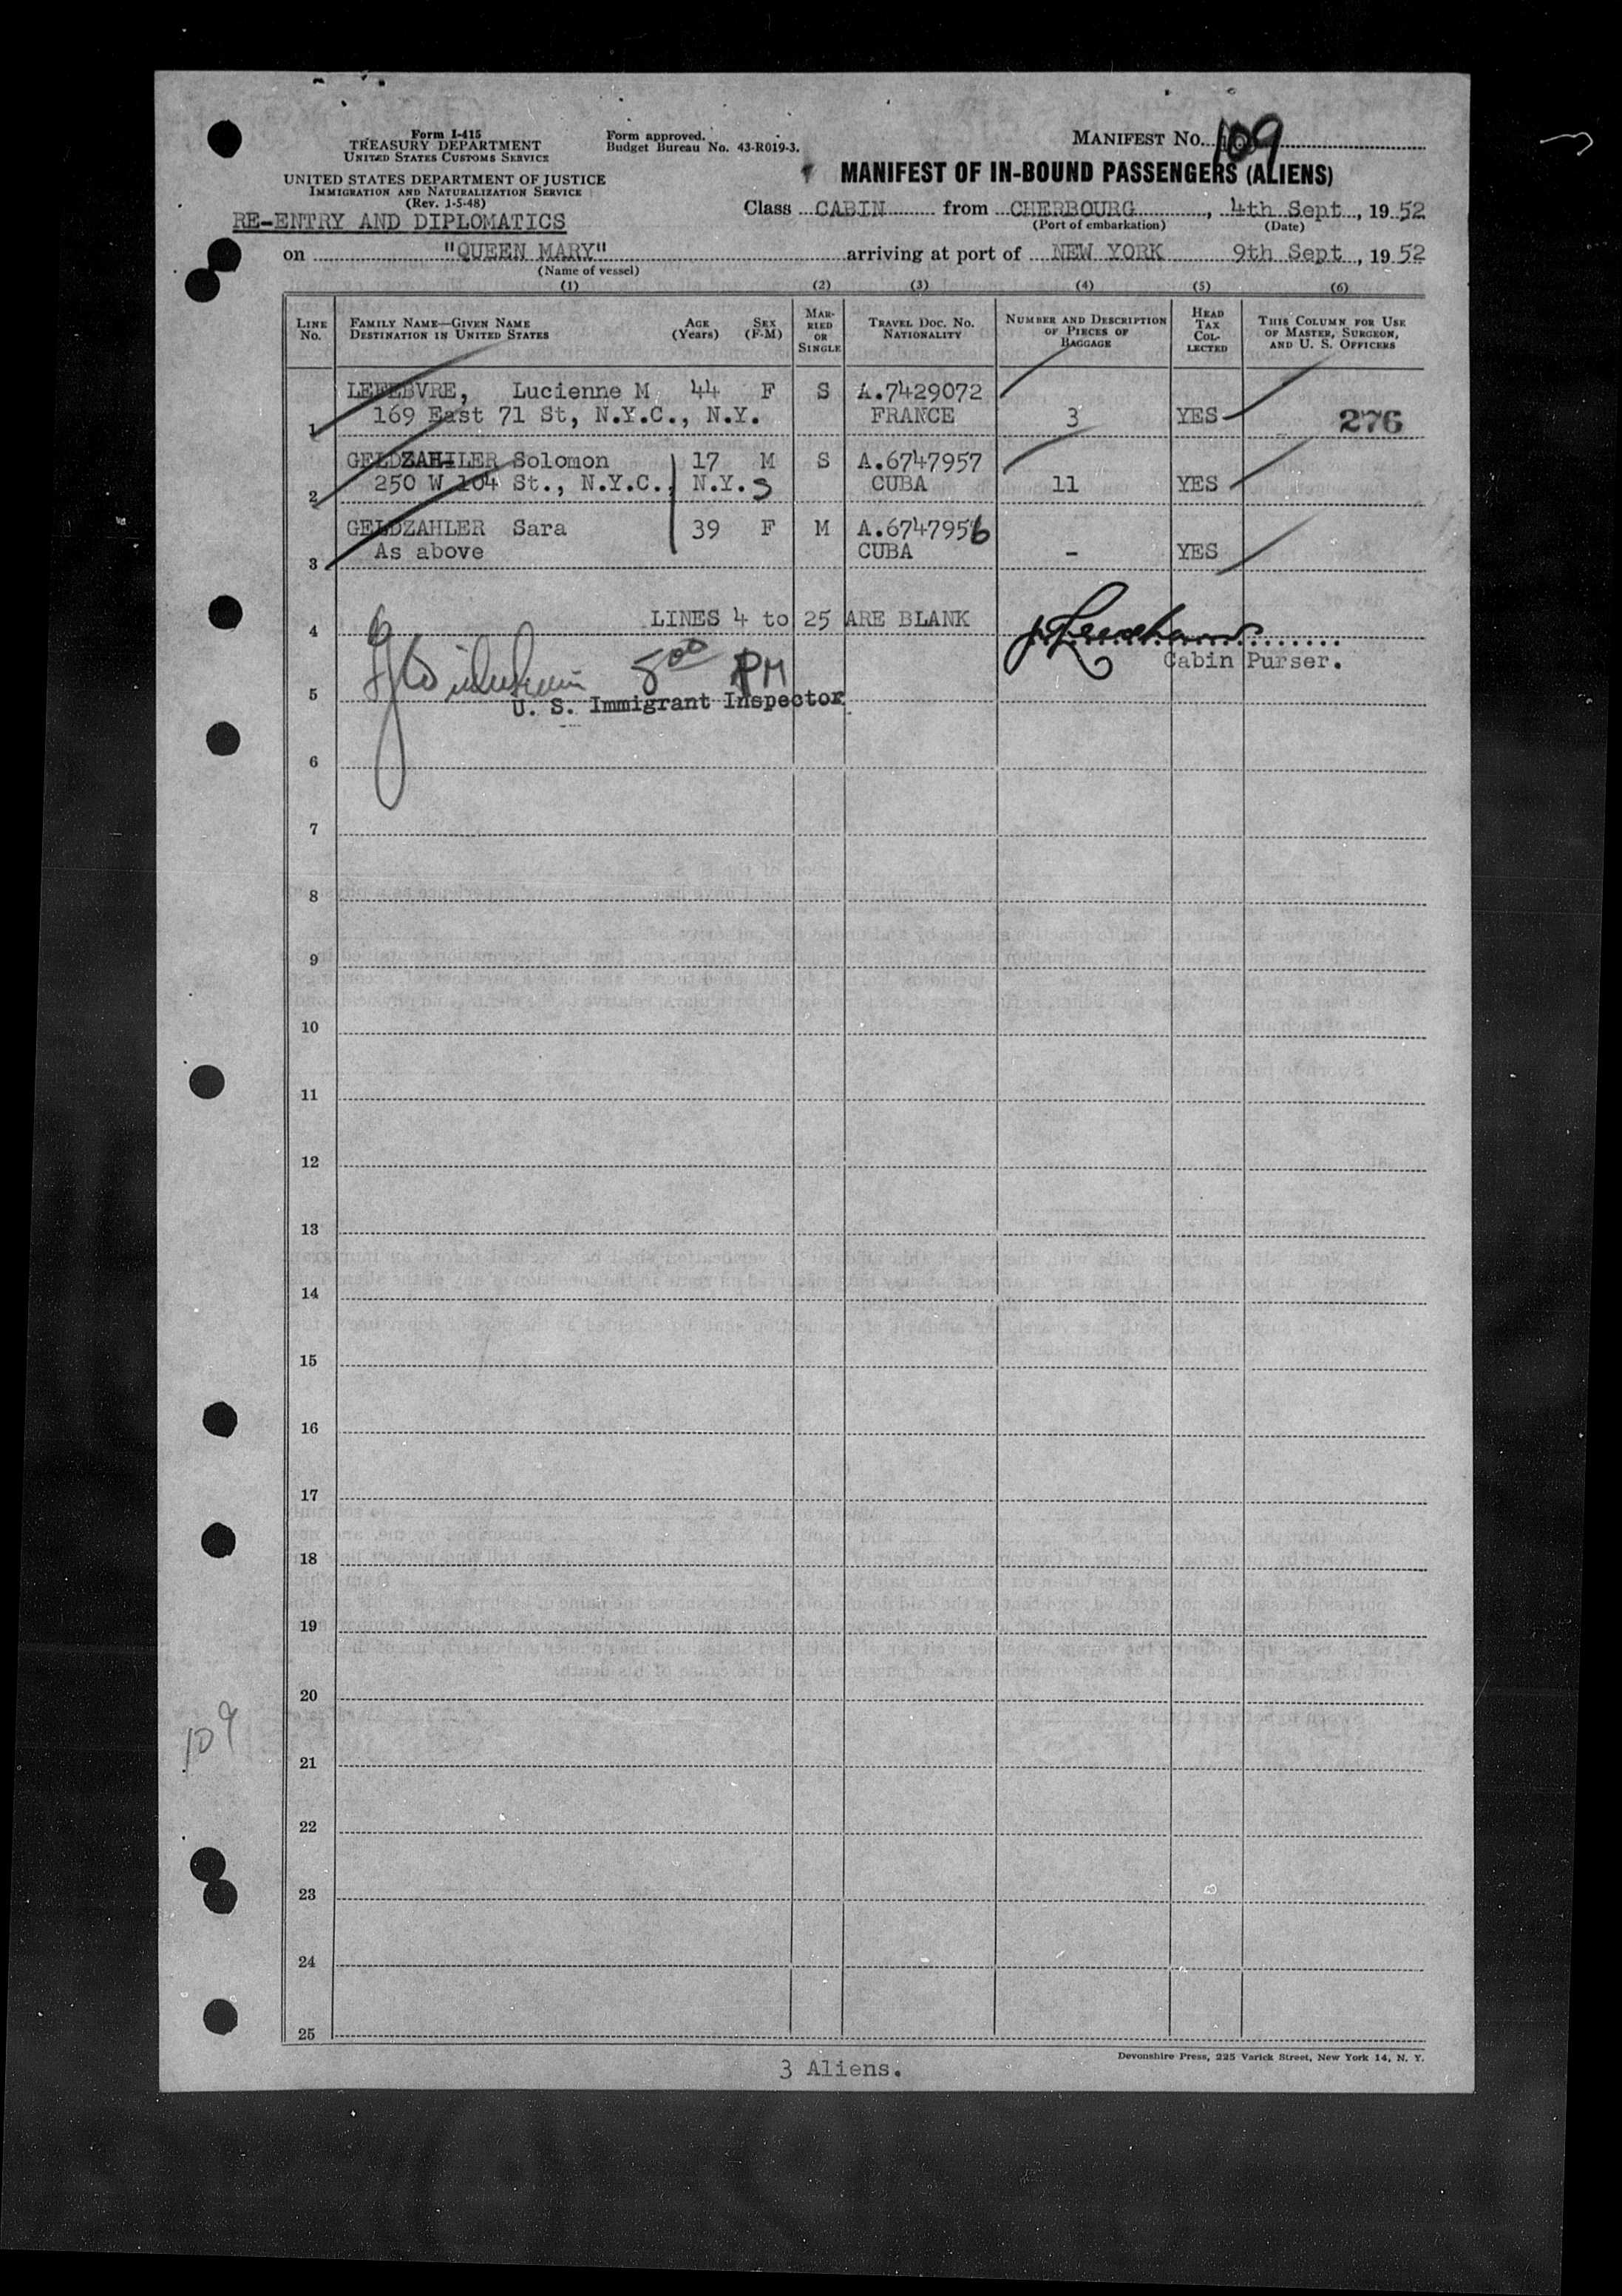 Form I-415
TREASURY DEPARTMENT
UNITED STATES CUSTOMS SERVICE
Form approved.
Budget Bureau No. 43-R019-3.
MANIFEST No. 109
UNITED STATES DEPARTMENT OF JUSTICE
IMMIGRATION AND NATURALIZATION SERVICE
(Rev. 1-5-48)
MANIFEST OF IN-BOUND PASSENGERS (ALIENS)
RE-ENTRY AND DIPLOMATICS
Class CABIN from CHERBOURG, 4th Sept, 1952
(Port of embarkation) (Date)
on "QUEEN MARY" arriving at port of NEW YORK 9th Sept, 1952
(Name of vessel)
(1) (2) (3) (4) (5) (6)
LINE No.
FAMILY NAME—GIVEN NAME
DESTINATION IN UNITED STATES
AGE (Years)
SEX (F-M)
MARRIED OR SINGLE
TRAVEL DOC. NO.
NATIONALITY
NUMBER AND DESCRIPTION OF PIECES OF BAGGAGE
HEAD TAX COLLECTED
THIS COLUMN FOR USE OF MASTER, SURGEON, AND U. S. OFFICERS
LEFEBVRE, Lucienne M 44 F S A.7429072
1 169 East 71 St, N.Y.C., N.Y. FRANCE 3 YES 276
GELDZAHLER Solomon 17 M S A.6747957
2 250 W 104 St., N.Y.C., N.Y. S CUBA 11 YES
GELDZAHLER Sara 39 F M A.6747956
3 As above CUBA - YES
4 LINES 4 to 25 ARE BLANK
Cabin Purser.
5 500 PM
U. S. Immigrant Inspector
6
7
8
9
10
11
12
13
14
15
16
17
18
19
20
109
21
22
23
24
25
Devonshire Press, 225 Varick Street, New York 14, N. Y.
3 Aliens.